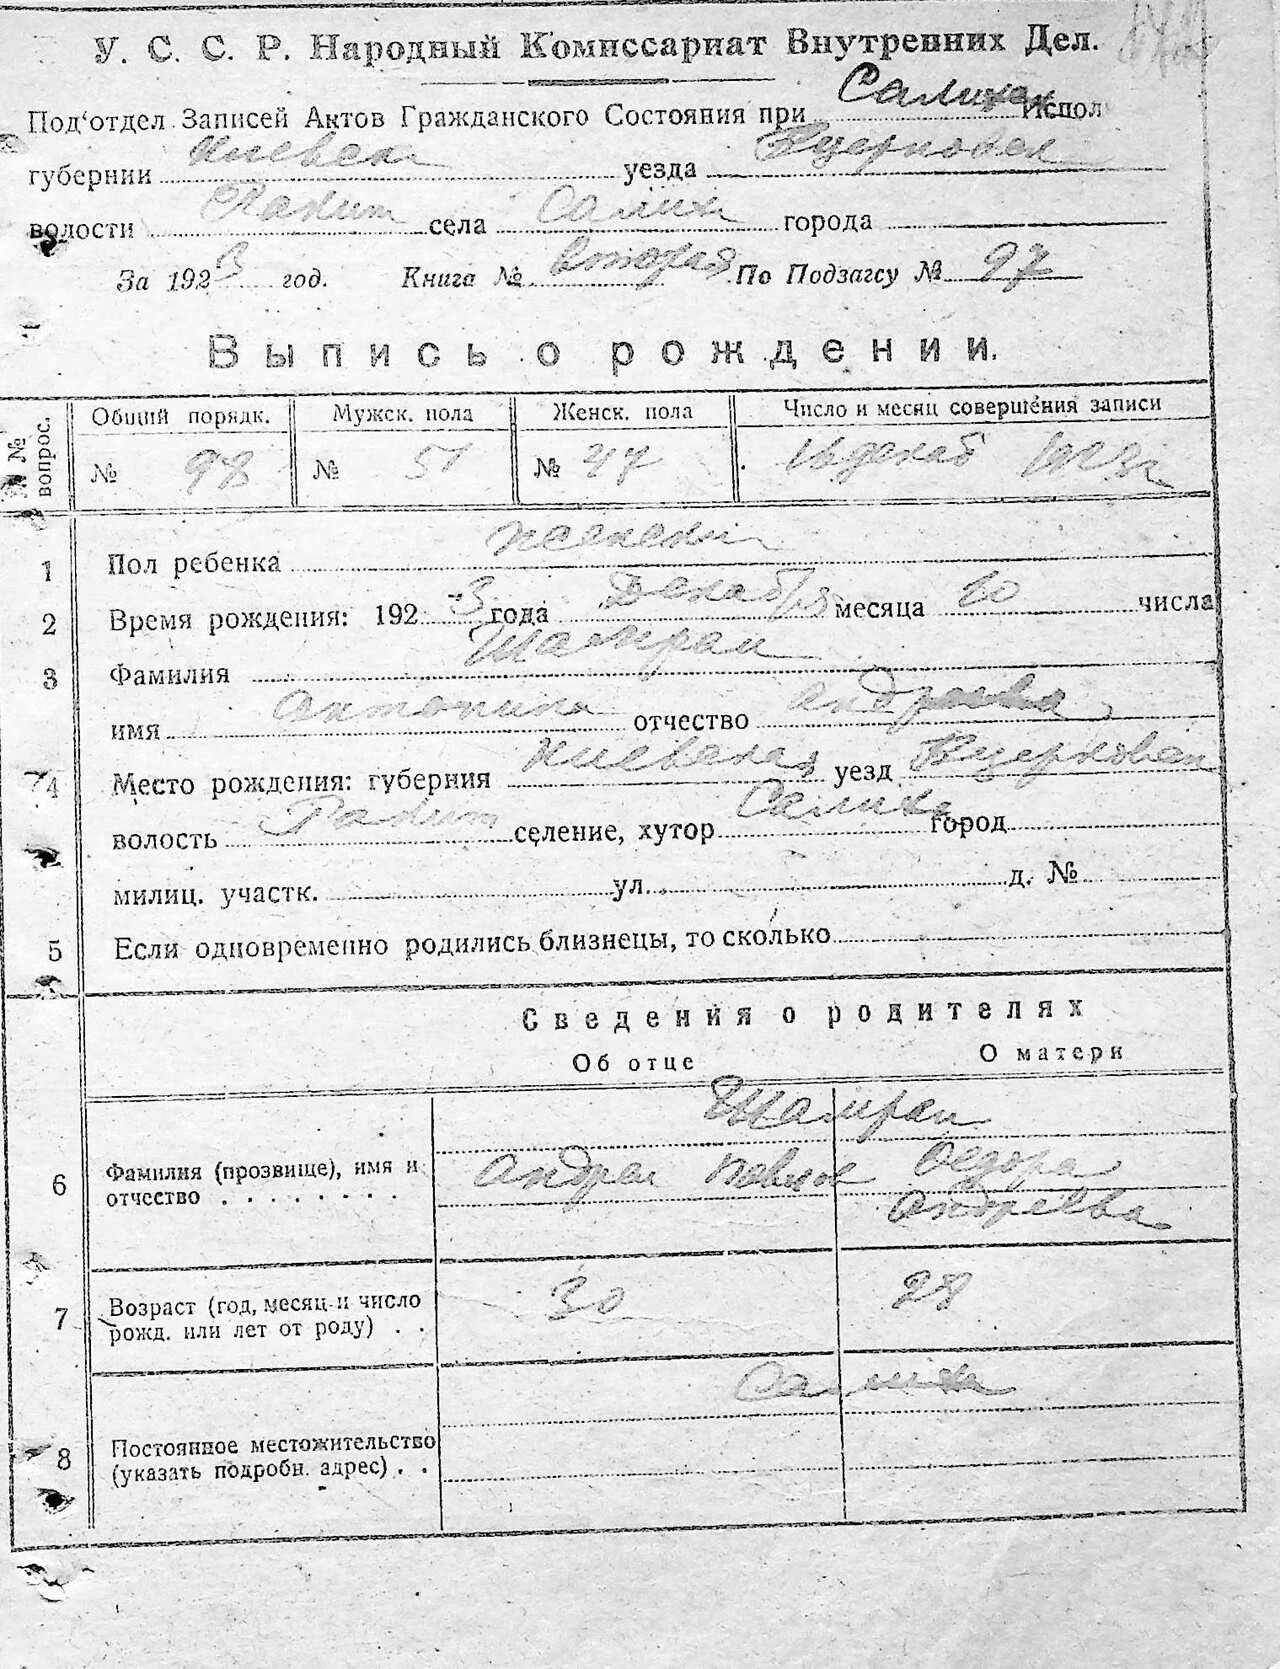 У. С. С. Р. Народный Комиссариат Внутренних Дел.
Под'отдел Записей Актов Гражданского Состояния при Салихах Испол
губернии Киевск уезда Бцерковск
волости Ракит села Салиха города
За 1923 год. Книга № вторая По Подзагсу № 97
Выпись о рождении.
№ № вопрос. Общий порядк. Мужск. пола Женск. пола Число и месяц совершения записи
№ 98 № 51 № 47 декаб 1923 г
1 Пол ребенка женский
2 Время рождения: 1923 года Декабря месяца 10 числа
3 Фамилия Шамрай
имя Антонина отчество Андреева
4 Место рождения: губерния Киевская уезд Бцерковск
волость Ракит селение, хутор Салиха город
милиц. участк. ул. д. №
5 Если одновременно родились близнецы, то сколько
Сведения о родителях
Об отце О матери
Шамрай
6 Фамилия (прозвище), имя и отчество Андрей Павлов Федора
Андреева
7 Возраст (год, месяц и число рожд. или лет от роду) 30 28
Салиха
8 Постоянное местожительство (указать подробн. адрес)